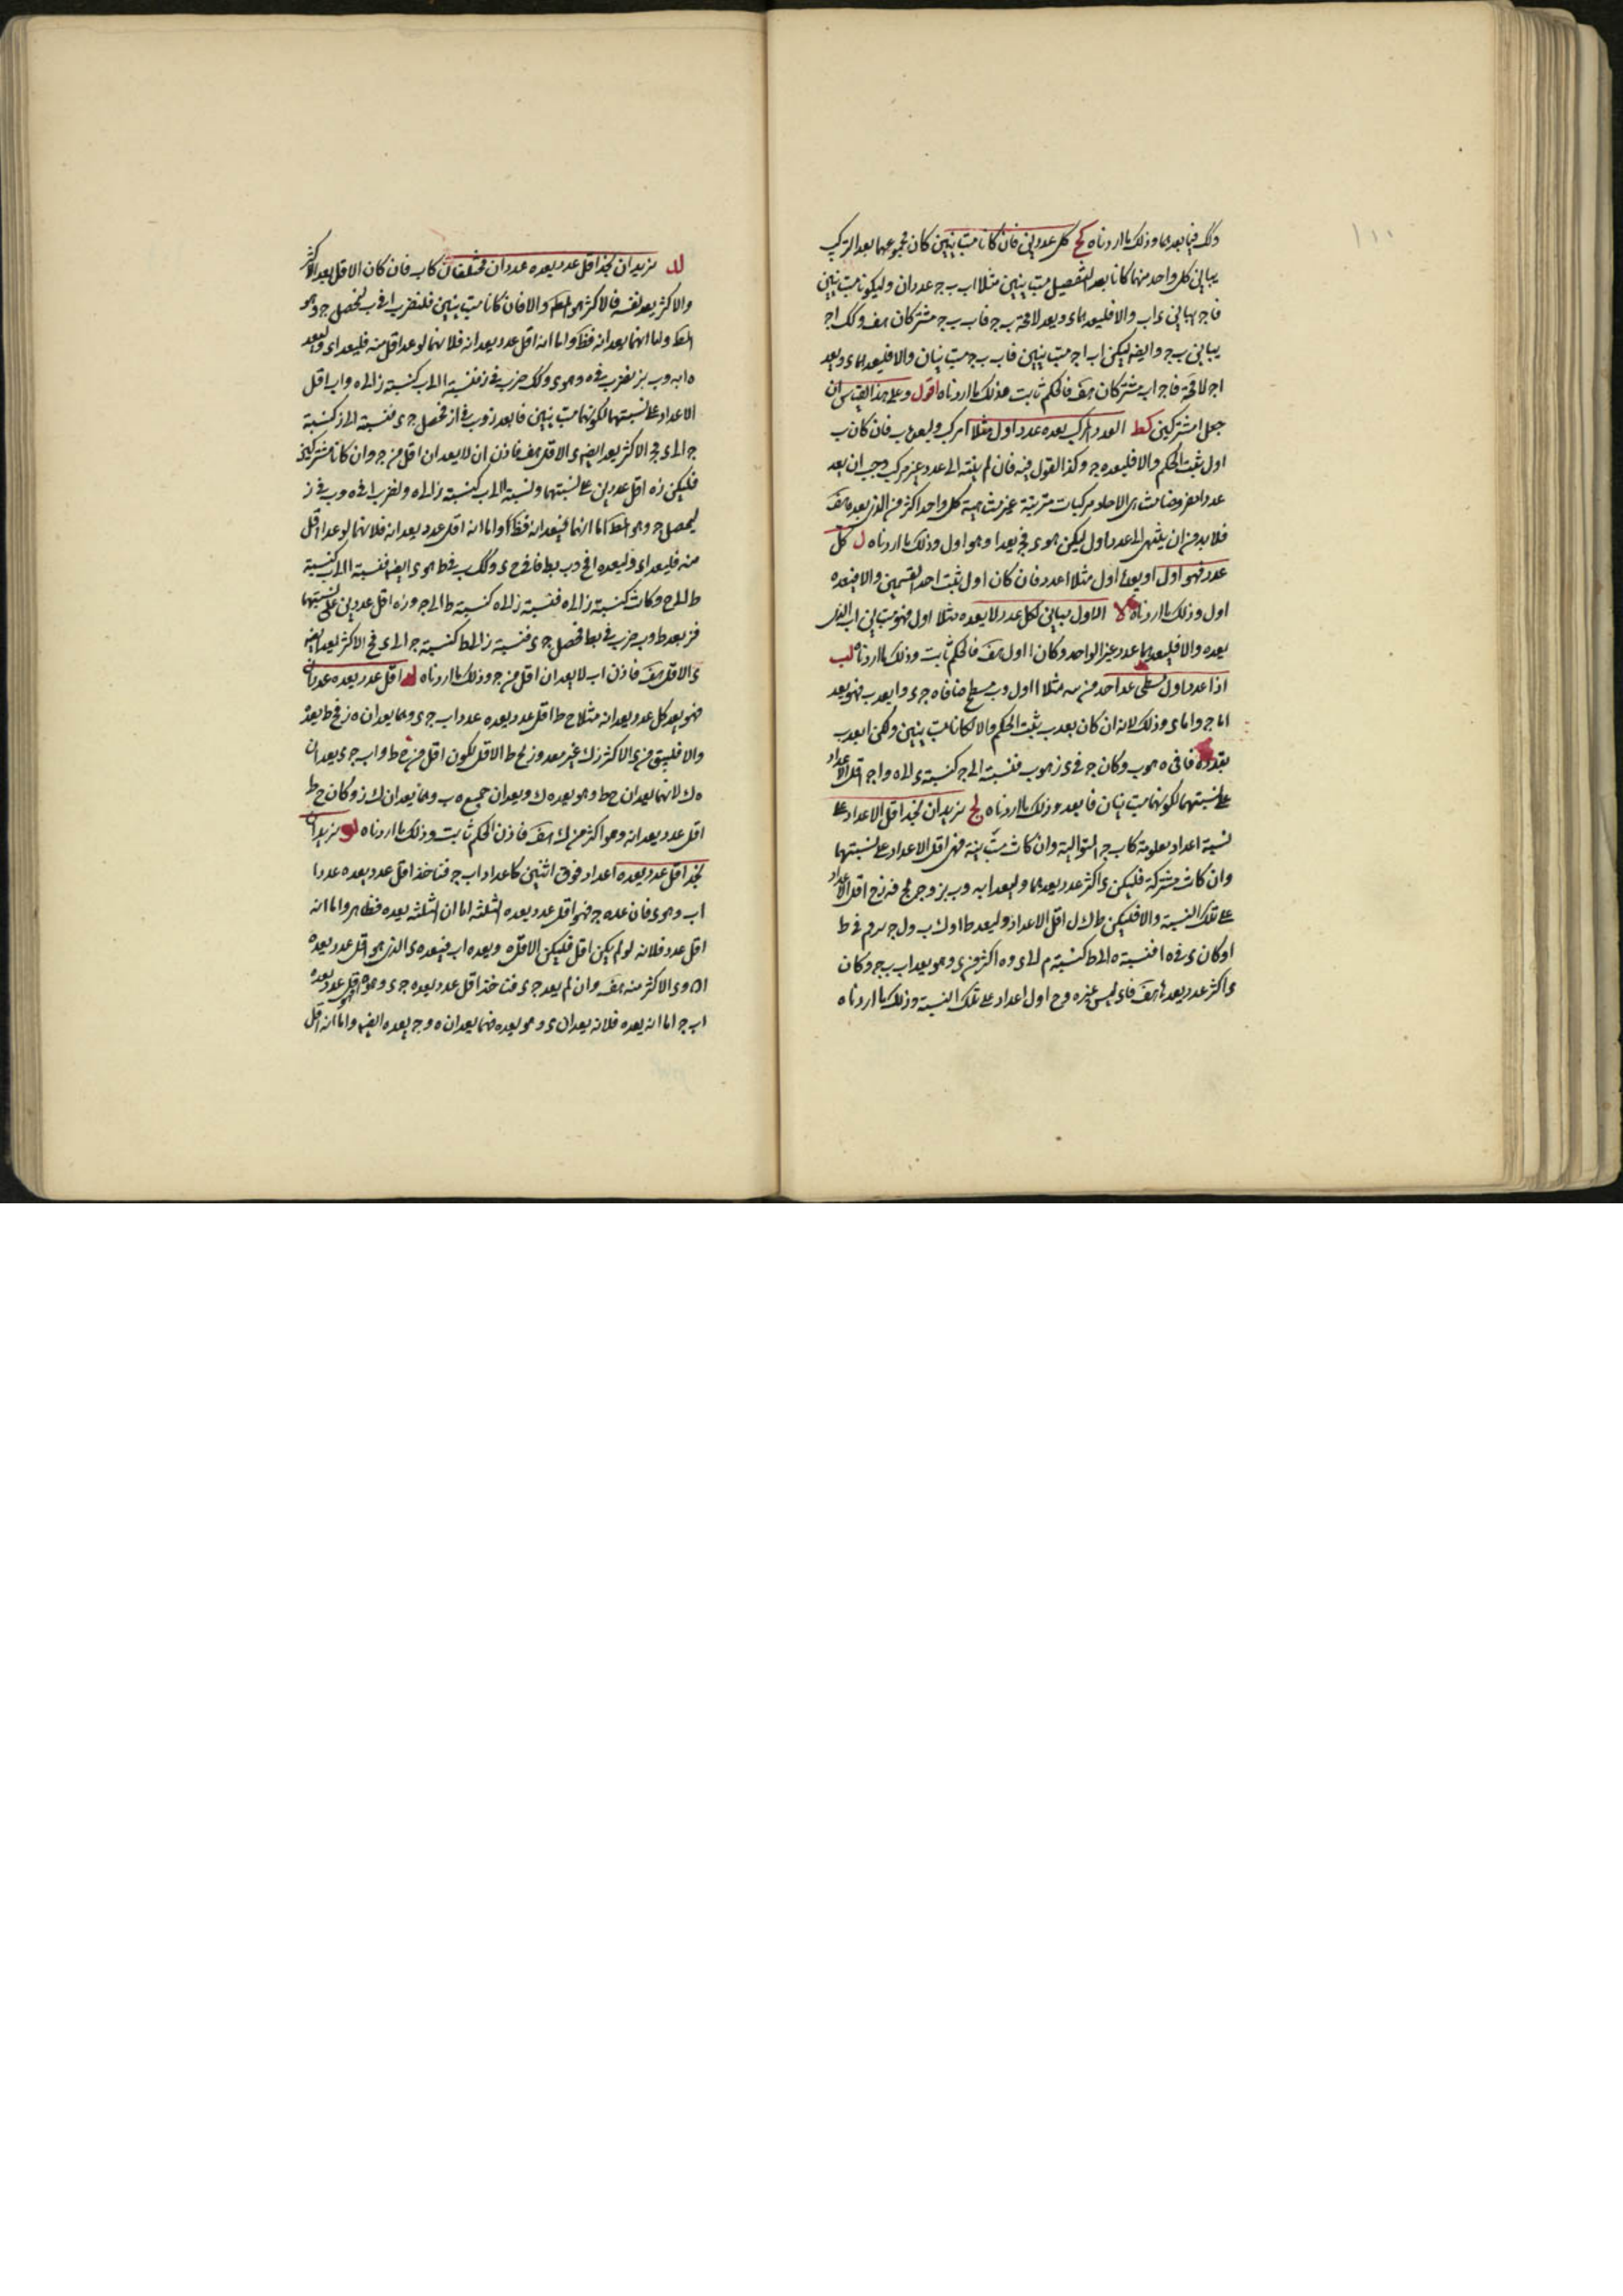 ذلك فيما بعد هما وذلك ما اردناه كح كل عددين فان كانا متباينين كان مجموعهما بعد التركيب
يباين كل واحد منهما كانا بعد التفصيل متباينين مثلا اب ب ج عددان وليكونا متباينين
فا ج يباين اب والا فليعدهما د ويعد لا محة ب ج فاب ب ج مشتركان هف وكك ا ج
يباين ب ج وايضه ليكن اب ا ج متباينين فاب ب ج متباينان والا فليعدهما د ويعد
ا ج لا محة فا ج اب مشتركان هف فالحكم ثابت وذلك ما اردناه اقول وعلى هذا القياس ان
جعل مشتركين كط العدد المركب يعده عدد اول مثلا ا مركب وليعده ب فان كان ب
اول ثبت الحكم والا فليعده ج وكذا القول فيه فان لم ينته الى عدد غير مركب وجب ان يعد
عددا مفروضا متناهى الاحاد مركبات مترتبة غير متناهية كل واحد اكثر من الذى بعده هف
فلا بد من ان ينتهى الى عدد اول ليكن هو د فد يعد ا وهو اول وذلك ما اردناه ل كل
عدد فهو اول او يعده اول مثلا ا عدد فان كان اول ثبت احد القسمين والا فيعده
اول وذلك ما اردناه لا الاول يباين لكل عدد لا يعده مثلا ا اول فهو مباين ل ب الذى
يعده والا فليعدهما عدد غير الواحد وكان ا اول هف فالحكم ثابت وذلك ما اردناه لب
اذا عد عدد اول مسطحا عد احد ضلعيه مثلا ا اول وب مسطح ضلعاه ج د وا يعد ب فهو يعد
اما ج واما د وذلك لانه ان كان يعد ج ثبت الحكم والا لكانا متباينين ولكن ا يعد ب
بقدر ه فا فى ه هو ب وكان ج فى د هو ب فنسبة ا الى ج كنسبة د الى ه وا ج اقل الاعداد
على نسبتهما لكونهما متباينان فا يعد د وذلك ما اردناه لج نريد ان نجد اقل الاعداد على
نسبة اعداد معلومة كا ب ج المتوالية وان كانت متباينة فهى اقل الاعداد على نسبتهما
وان كانت مشتركة فليكن د اكثر عدد يعدهما وليعد ا به وب بز وج بح فه ز ح اقل الاعداد
على تلك النسبة والا فليكن ط ك ل اقل الاعداد وليعد ط ا وك ب ول ج بم وم فى ط
ا وكان د فى ه ا فنسبة ه الى ط كنسبة م الى د وه اكثر من ط وهو يعد ا ب ج وكان
د اكثر عدد يعدها هف فاذن ليس غير ه ز ح اول اعداد على تلك النسبة وذلك ما اردناه
لد نريد ان نجد اقل عدد يعده عددان مختلفان كا ب فان كان الاقل يعد الاكثر
والاكثر يعد نفسه فالاكثر هو المط والا فان كانا متباينين فلنضرب ا فى ب ليحصل ج وهو
المط واما انهما يعدانه فظ واما انه اقل عدد يعدانه فلانهما لو عدا اقل منه فليعدا د وليعد
ه ا به وب بز نضرب فى ه وهو د وكك ضرب فى ز فنسبة ا الى ب كنسبة ز الى ه وا ب اقل
الاعداد على نسبتهما لكونهما متباينين فا يعد ز وب فى ا ز فحصل ج د فنسبة ا الى ز كنسبة
ج الى د فج الاكثر يعد ايضه د الاقل هف فاذن ان لا يعدان اقل من ج وان كانا مشتركين
فليكن ز ه اقل عددين على نسبتهما ونسبة ا الى ب كنسبة ز الى ه ولنضرب ا فى ه وب فى ز
ليحصل ج وهو المط اما انهما فيعدانه فظ واما انه اقل عدد يعدانه فلانهما لو عدا اقل
منه فليعدا د وليعده ا فى ح وب بط فا فى ح د وكك ب فى ط هو د ايضه فنسبة ا الى ب كنسبة
ط الى ح وكانت كنسبة ز الى ه فنسبة ز الى ه كنسبة ط الى ح وز ه اقل عددين على نسبتهما
فز يعد ط وب ضرب فى بط فحصل ج د فنسبة ز الى ط كنسبة ج الى د فج الاكثر يعد ايضه
د الاقل هف فاذن اب لا يعدان اقل من ج وذلك ما اردناه له اقل عدد يعده عددان
فهو يعد كل عدد يعدانه مثلا ح ط اقل عدد يعده عددا اب ج د وهما يعدان ه ز فح ط يعده
والا فليبق من ه ز الاكثر ز ك غير معدود لح ط الاقل لكون اقل من ح ط واب ج د يعدان
ه ك لانهما يعدان ح ط وهو يعد ه ك ويعدان جميع ه ز وهما يعدان ك ز وكان ح ط
اقل عدد يعدانه وهو اكثر من ك ز هف فاذن الحكم ثابت وذلك ما اردناه لو نريد ان
نجد اقل عدد يعده اعداد فوق اثنين كاعداد ا ب ج فتاخذ اقل عدد يعده عددا
اب وهو د فان عده ج فهو اقل عدد يعده الثلثة اما ان الثلثة يعده فظاهر واما انه
اقل عدد فلانه لو لم يكن اقل فليكن الاقل ه ويعده اب فيعده د الذى هو اقل عدد يعده
اب ود الاكثر منه هف وان لم يعد ج د فتاخذ اقل عدد يعده ج د وهو ه فهو اقل عدد يعده
اب ج اما انه يعده فلانه يعدان د وهو يعد ه فهما يعدان ه وج يعده ايضه واما انه اقل